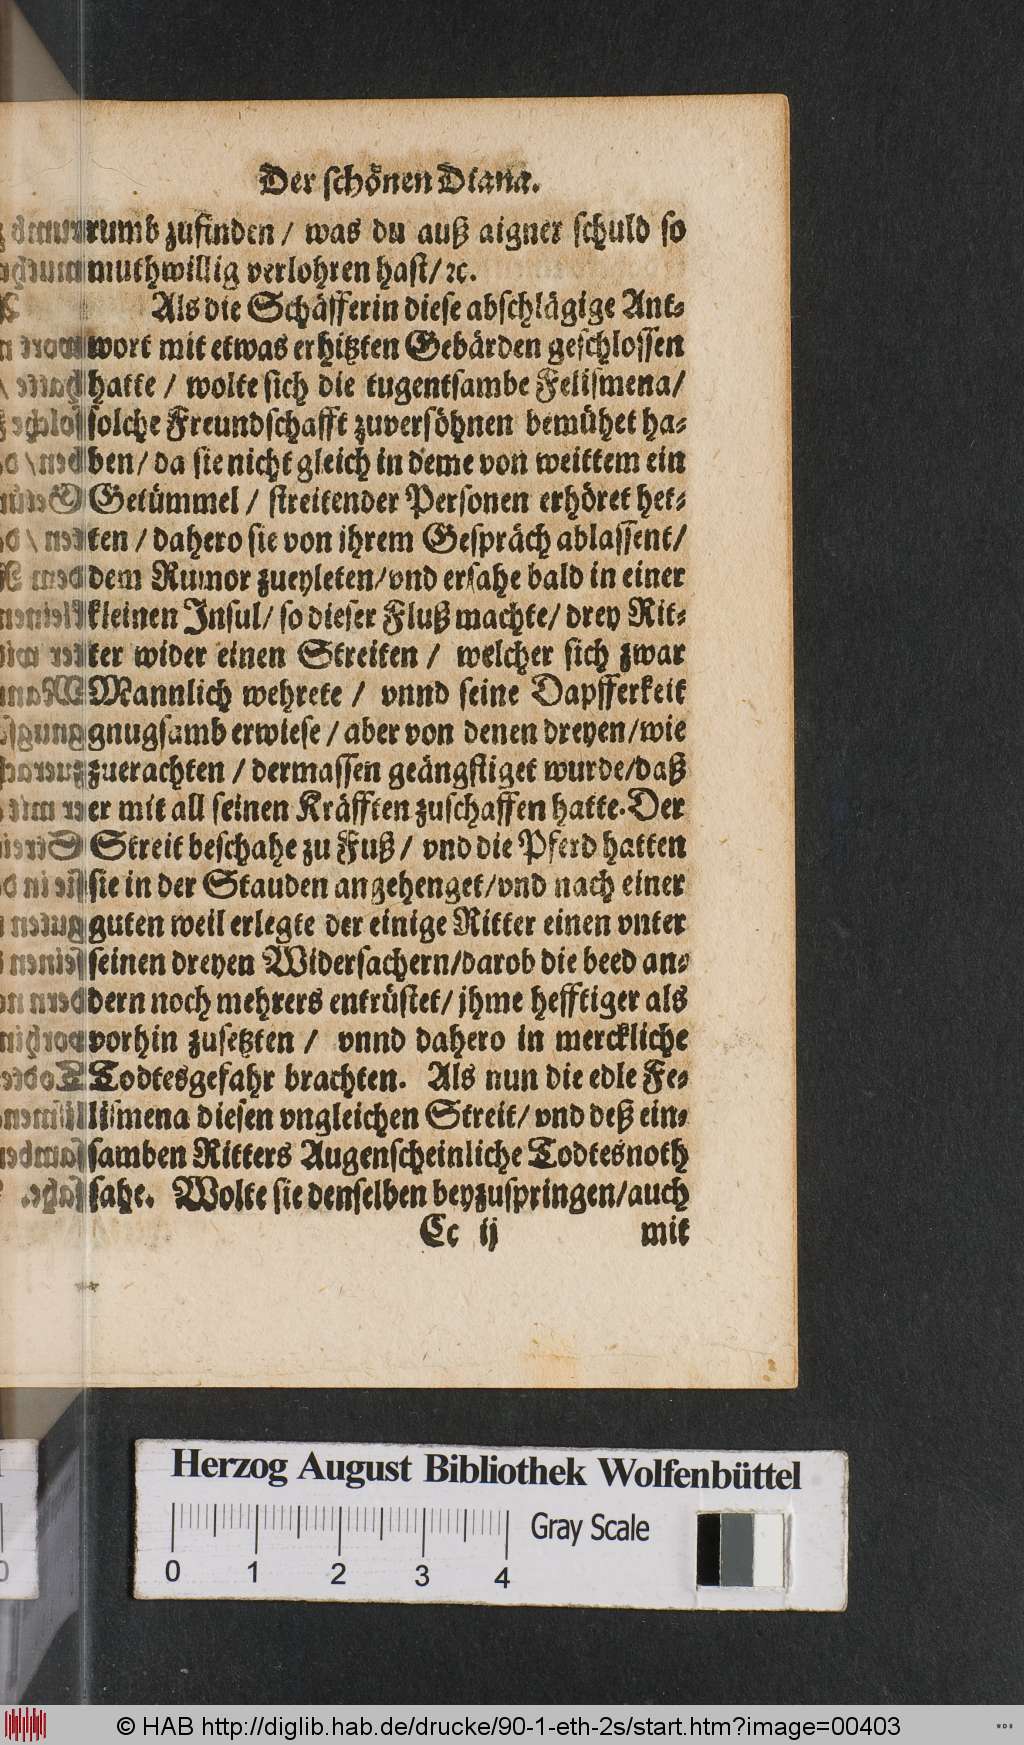 Der schönen Diana.
rumb zufinden / was du auß aigner schuld so
muthwillig verlohren hast / ꝛc.
Als die Schäfferin diese abschlägige Ant-
wort mit etwas erhitzten Gebärden geschlossen
hatte / wolte sich die tugentsambe Felismena /
solche Freundschafft zuversöhnen bemühet ha-
ben / da sie nicht gleich in deme von weittem ein
Getümmel / streitender Personen erhöret het-
ten / dahero sie von ihrem Gespräch ablassent /
dem Rumor zueyleten / vnd ersahe bald in einer
kleinen Insul / so dieser Fluß machte / drey Rit-
ter wider einen Streiten / welcher sich zwar
Mannlich wehrete / vnnd seine Dapfferkeit
gnugsamb erwiese / aber von denen dreyen / wie
zuerachten / dermassen geängstiget wurde / daß
er mit all seinen Kräfften zuschaffen hatte. Der
Streit beschahe zu Fuß / vnd die Pferd hatten
sie in der Stauden angehenget / vnd nach einer
guten weil erlegte der einige Ritter einen vnter
seinen dreyen Widersachern / darob die beed an-
dern noch mehrers entrüstet / jhme hefftiger als
vorhin zusetzten / vnnd dahero in merckliche
Todtesgefahr brachten. Als nun die edle Fe-
lismena diesen vngleichen Streit / vnd deß ein-
samben Ritters Augenscheinliche Todtesnoth
sahe. Wolte sie denselben beyzuspringen / auch
Cc ij mit
Herzog August Bibliothek Wolfenbüttel
Gray Scale
0 1 2 3 4
© HAB http://diglib.hab.de/drucke/90-1-eth-2s/start.htm?image=00403